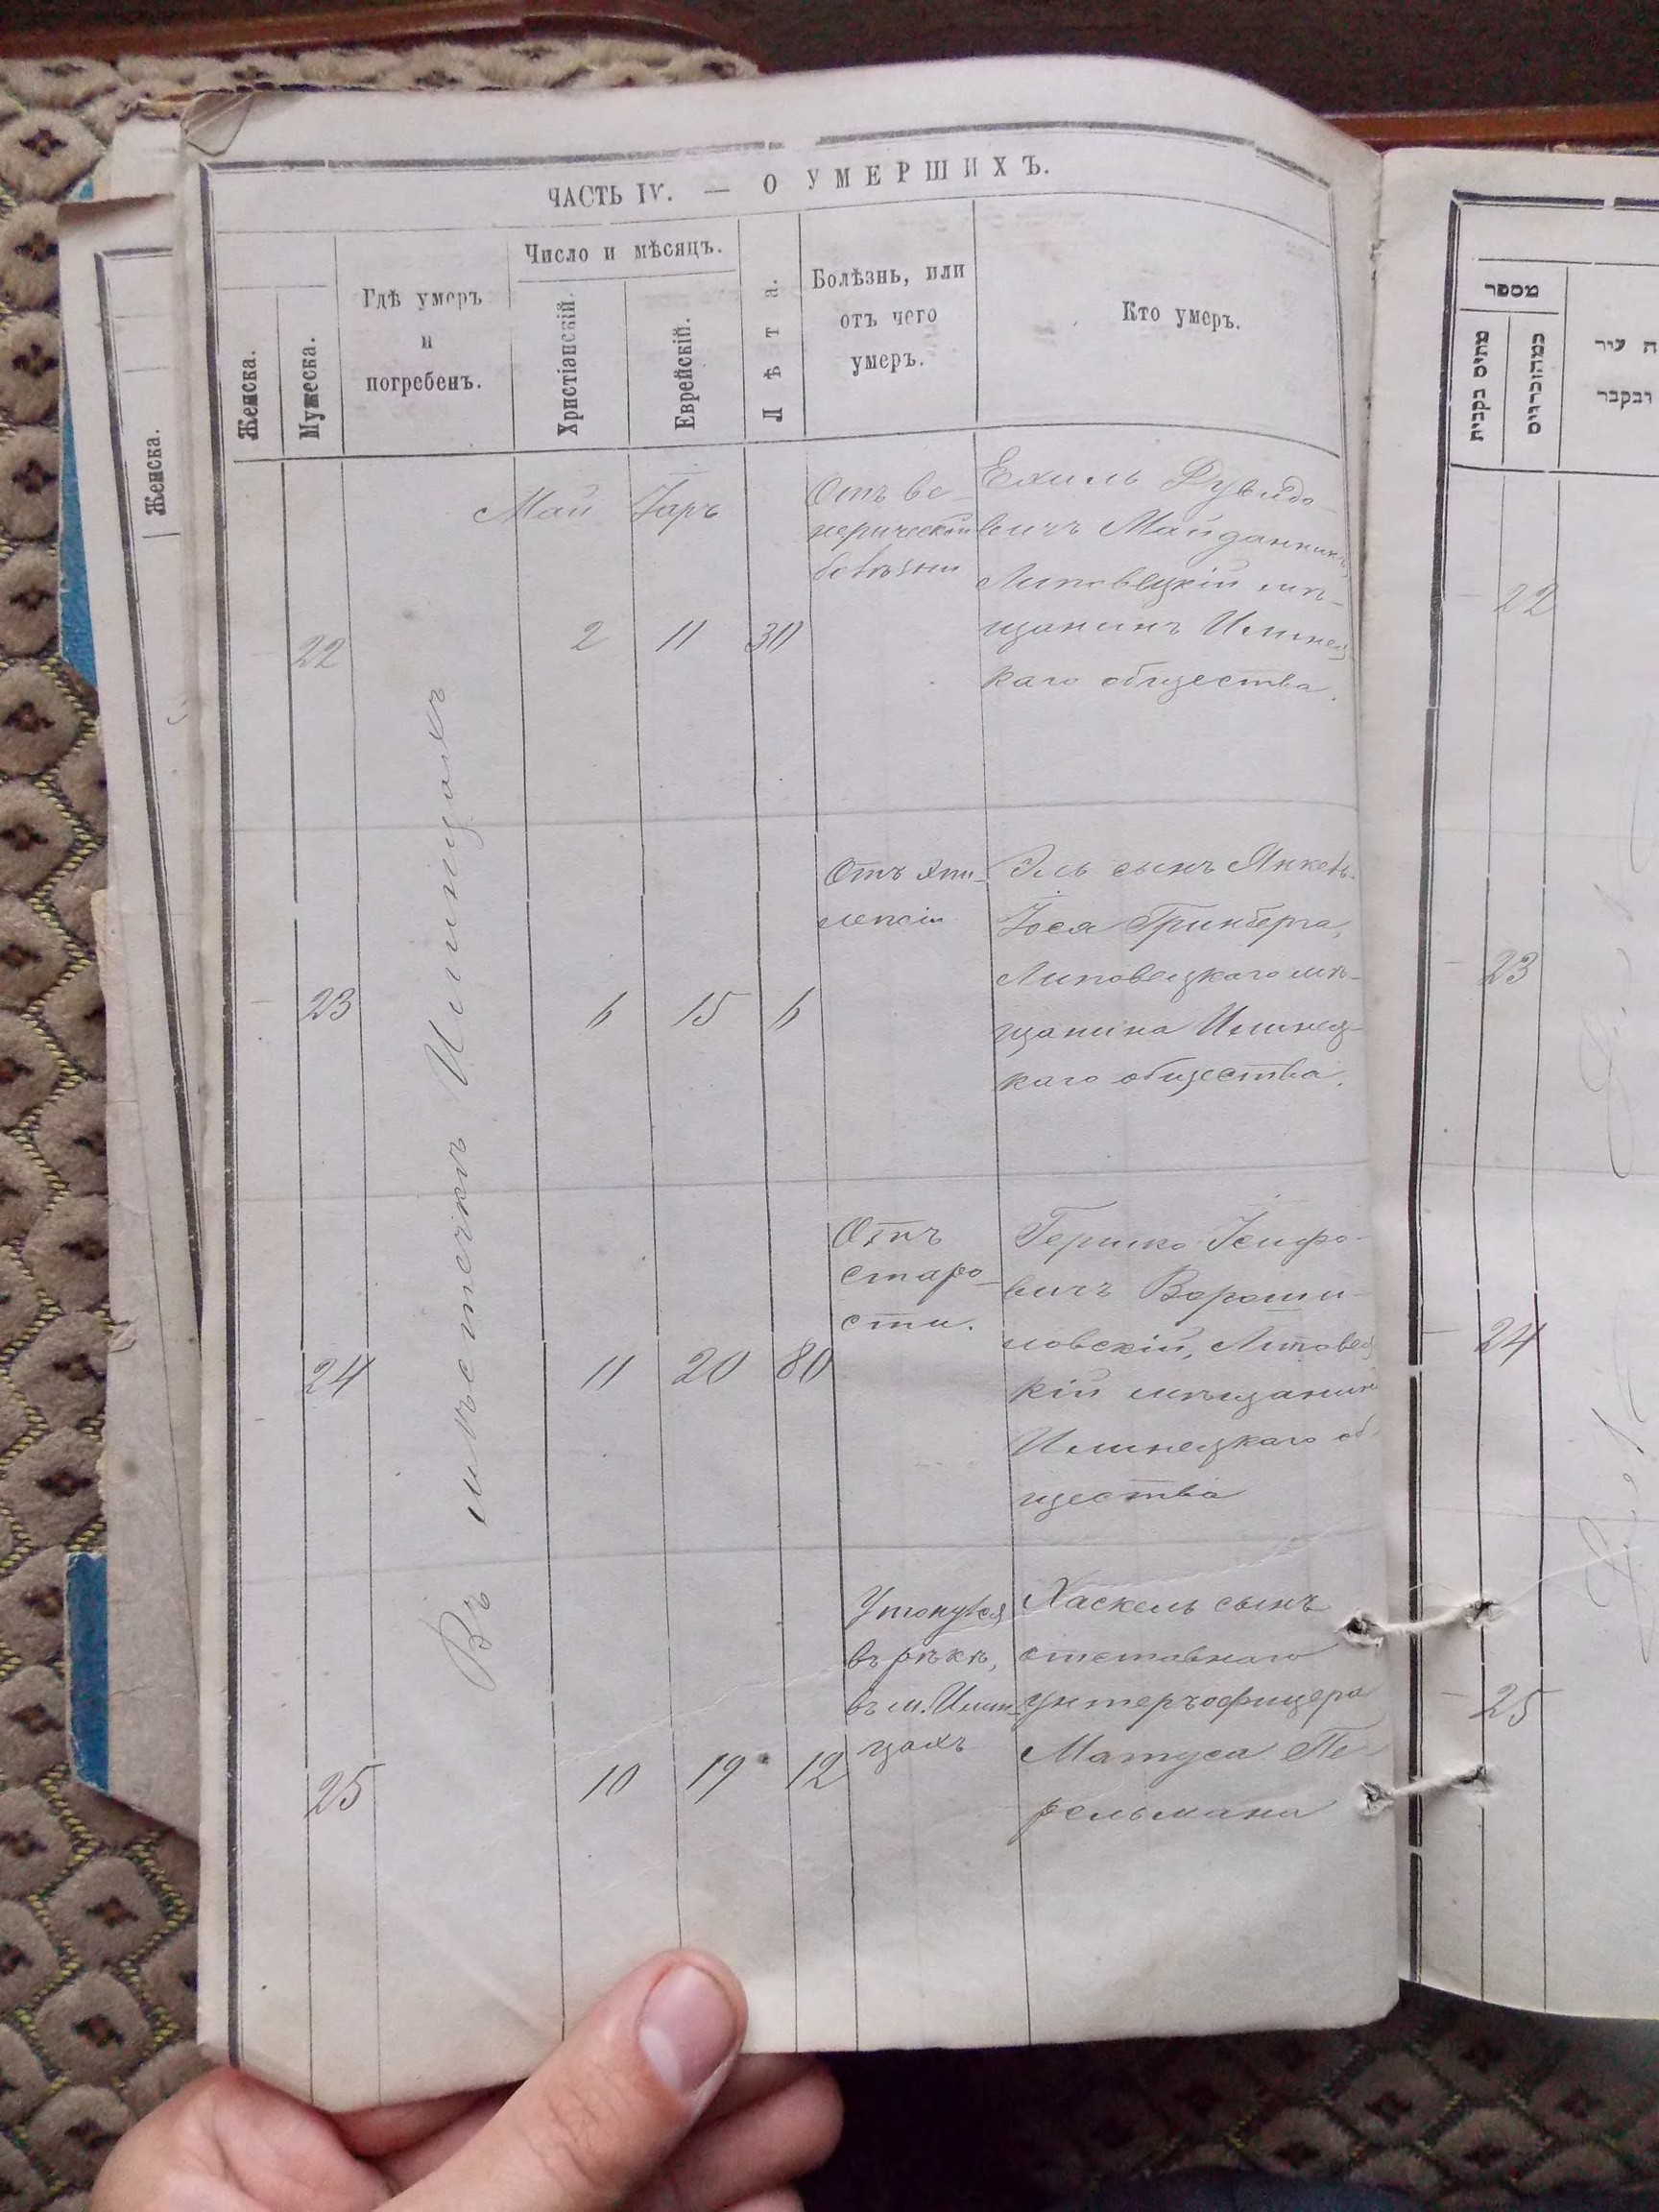 ЧАСТЬ IV. — О УМЕРШИХЪ.
Женска.
Мужеска.
Гдѣ умеръ
и
погребенъ.
Число и мѣсяцъ.
Христіанскій.
Еврейскій.
Лѣта.
Болѣзнь, или
отъ чего
умеръ.
Кто умеръ.
Въ мѣстечкѣ Илинцахъ
Май
Іаръ
22
2
11
30
Отъ ве-
нерической
болѣзни
Ехиль Дувидо-
вичъ Майданникъ,
Липовецкій мѣ-
щанинъ Илинец
каго общества.
23
6
15
6
Отъ эпи-
лепсіи
Эль сынъ Янкель-
Іося Гринберга,
Липовецкаго мѣ-
щанина Илинец-
каго общества.
24
11
20
80
Отъ
старо-
сти.
Гершко Іосифо-
вичъ
ловскій, Липовец
кій мѣщанинъ
Илинецкаго об-
щества
25
10
19
12
Утонулся
въ рѣкѣ,
въ м. Илин-
цахъ
Хаскель сынъ
отставнаго
унтеръофицера
Матуса Пе-
рельмана
Женска.
מספר
מתים בקבית
ה עיר
ובקבר
22
23
24
25